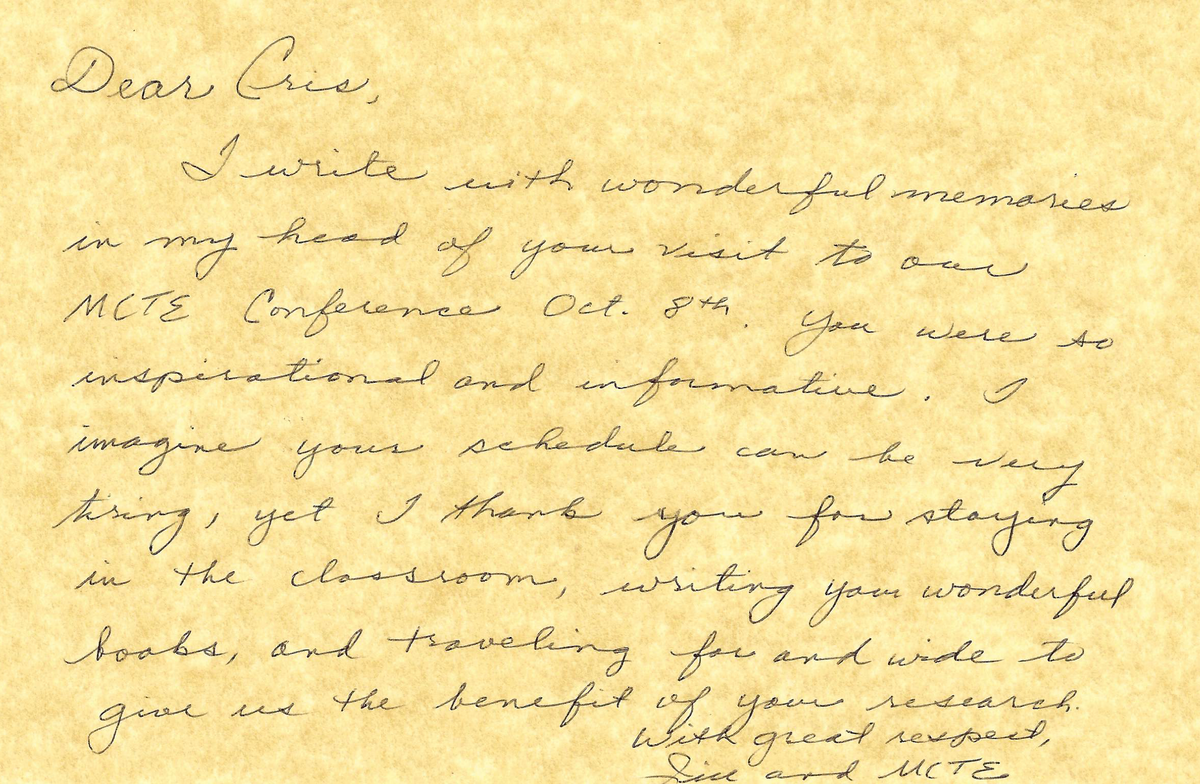 Dear Cris,
I write with wonderful memories
in my head of your visit to our
MCTE Conference Oct. 8th. You were so
inspirational and informative. I
imagine your schedule can be very
tiring, yet I thank you for staying
in the classroom, writing your wonderful
books, and traveling far and wide to
give us the benefit of your research.
With great respect,
and MCTE